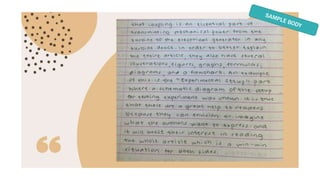 SAMPLE BODY
that coupling is an essential part of
transmitting mechanical power from the
turbine to the electrical generator in any
turbine device. In order to better explain
the entire article, they also have several
illustrations, figures, graphs, formulas,
diagrams, and a flowchart. An example
of this is the "experimental setup" part
where a schematic diagram of the setup
for testing experiment was shown. It is true
that these are a great help to readers
because they can envision or imagine
what the authors want to express and
it will boost their interest in reading
the whole article which is a win-win
situation for both sides.